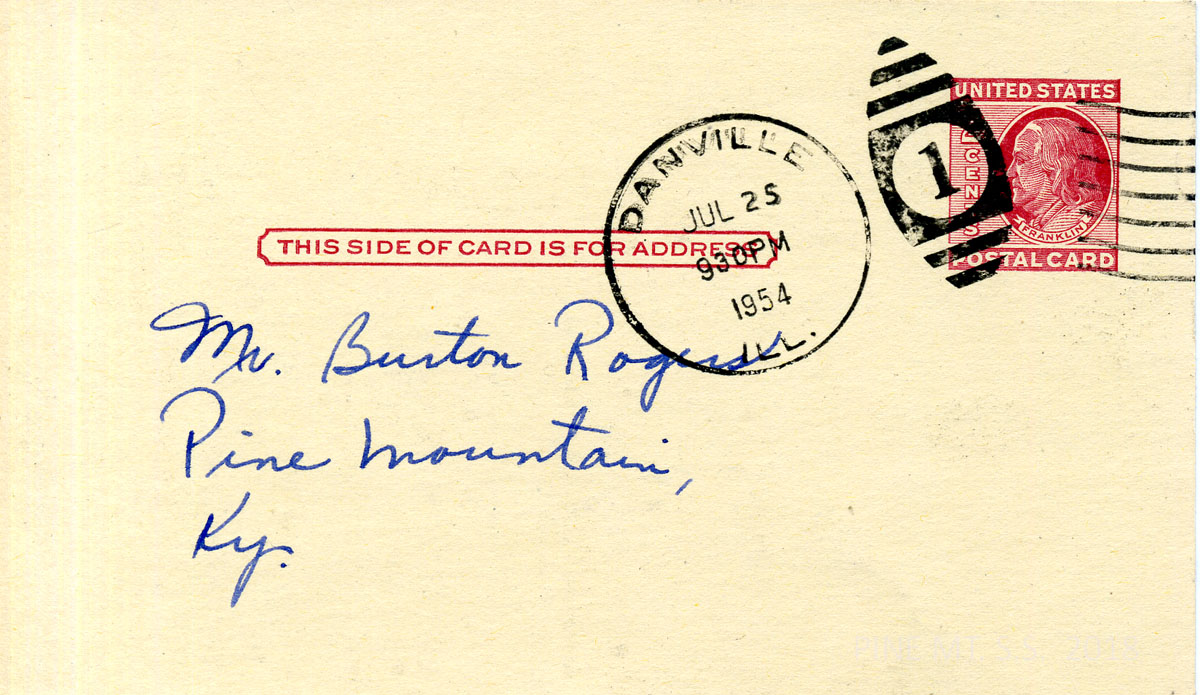 UNITED STATES
2 CENTS
FRANKLIN
POSTAL CARD
1
DANVILLE
JUL 25
930PM
1954
ILL.
THIS SIDE OF CARD IS FOR ADDRESS
Mr. Burton Rogers
Pine Mountain,
Ky.
PINE MT. S.S. 2018